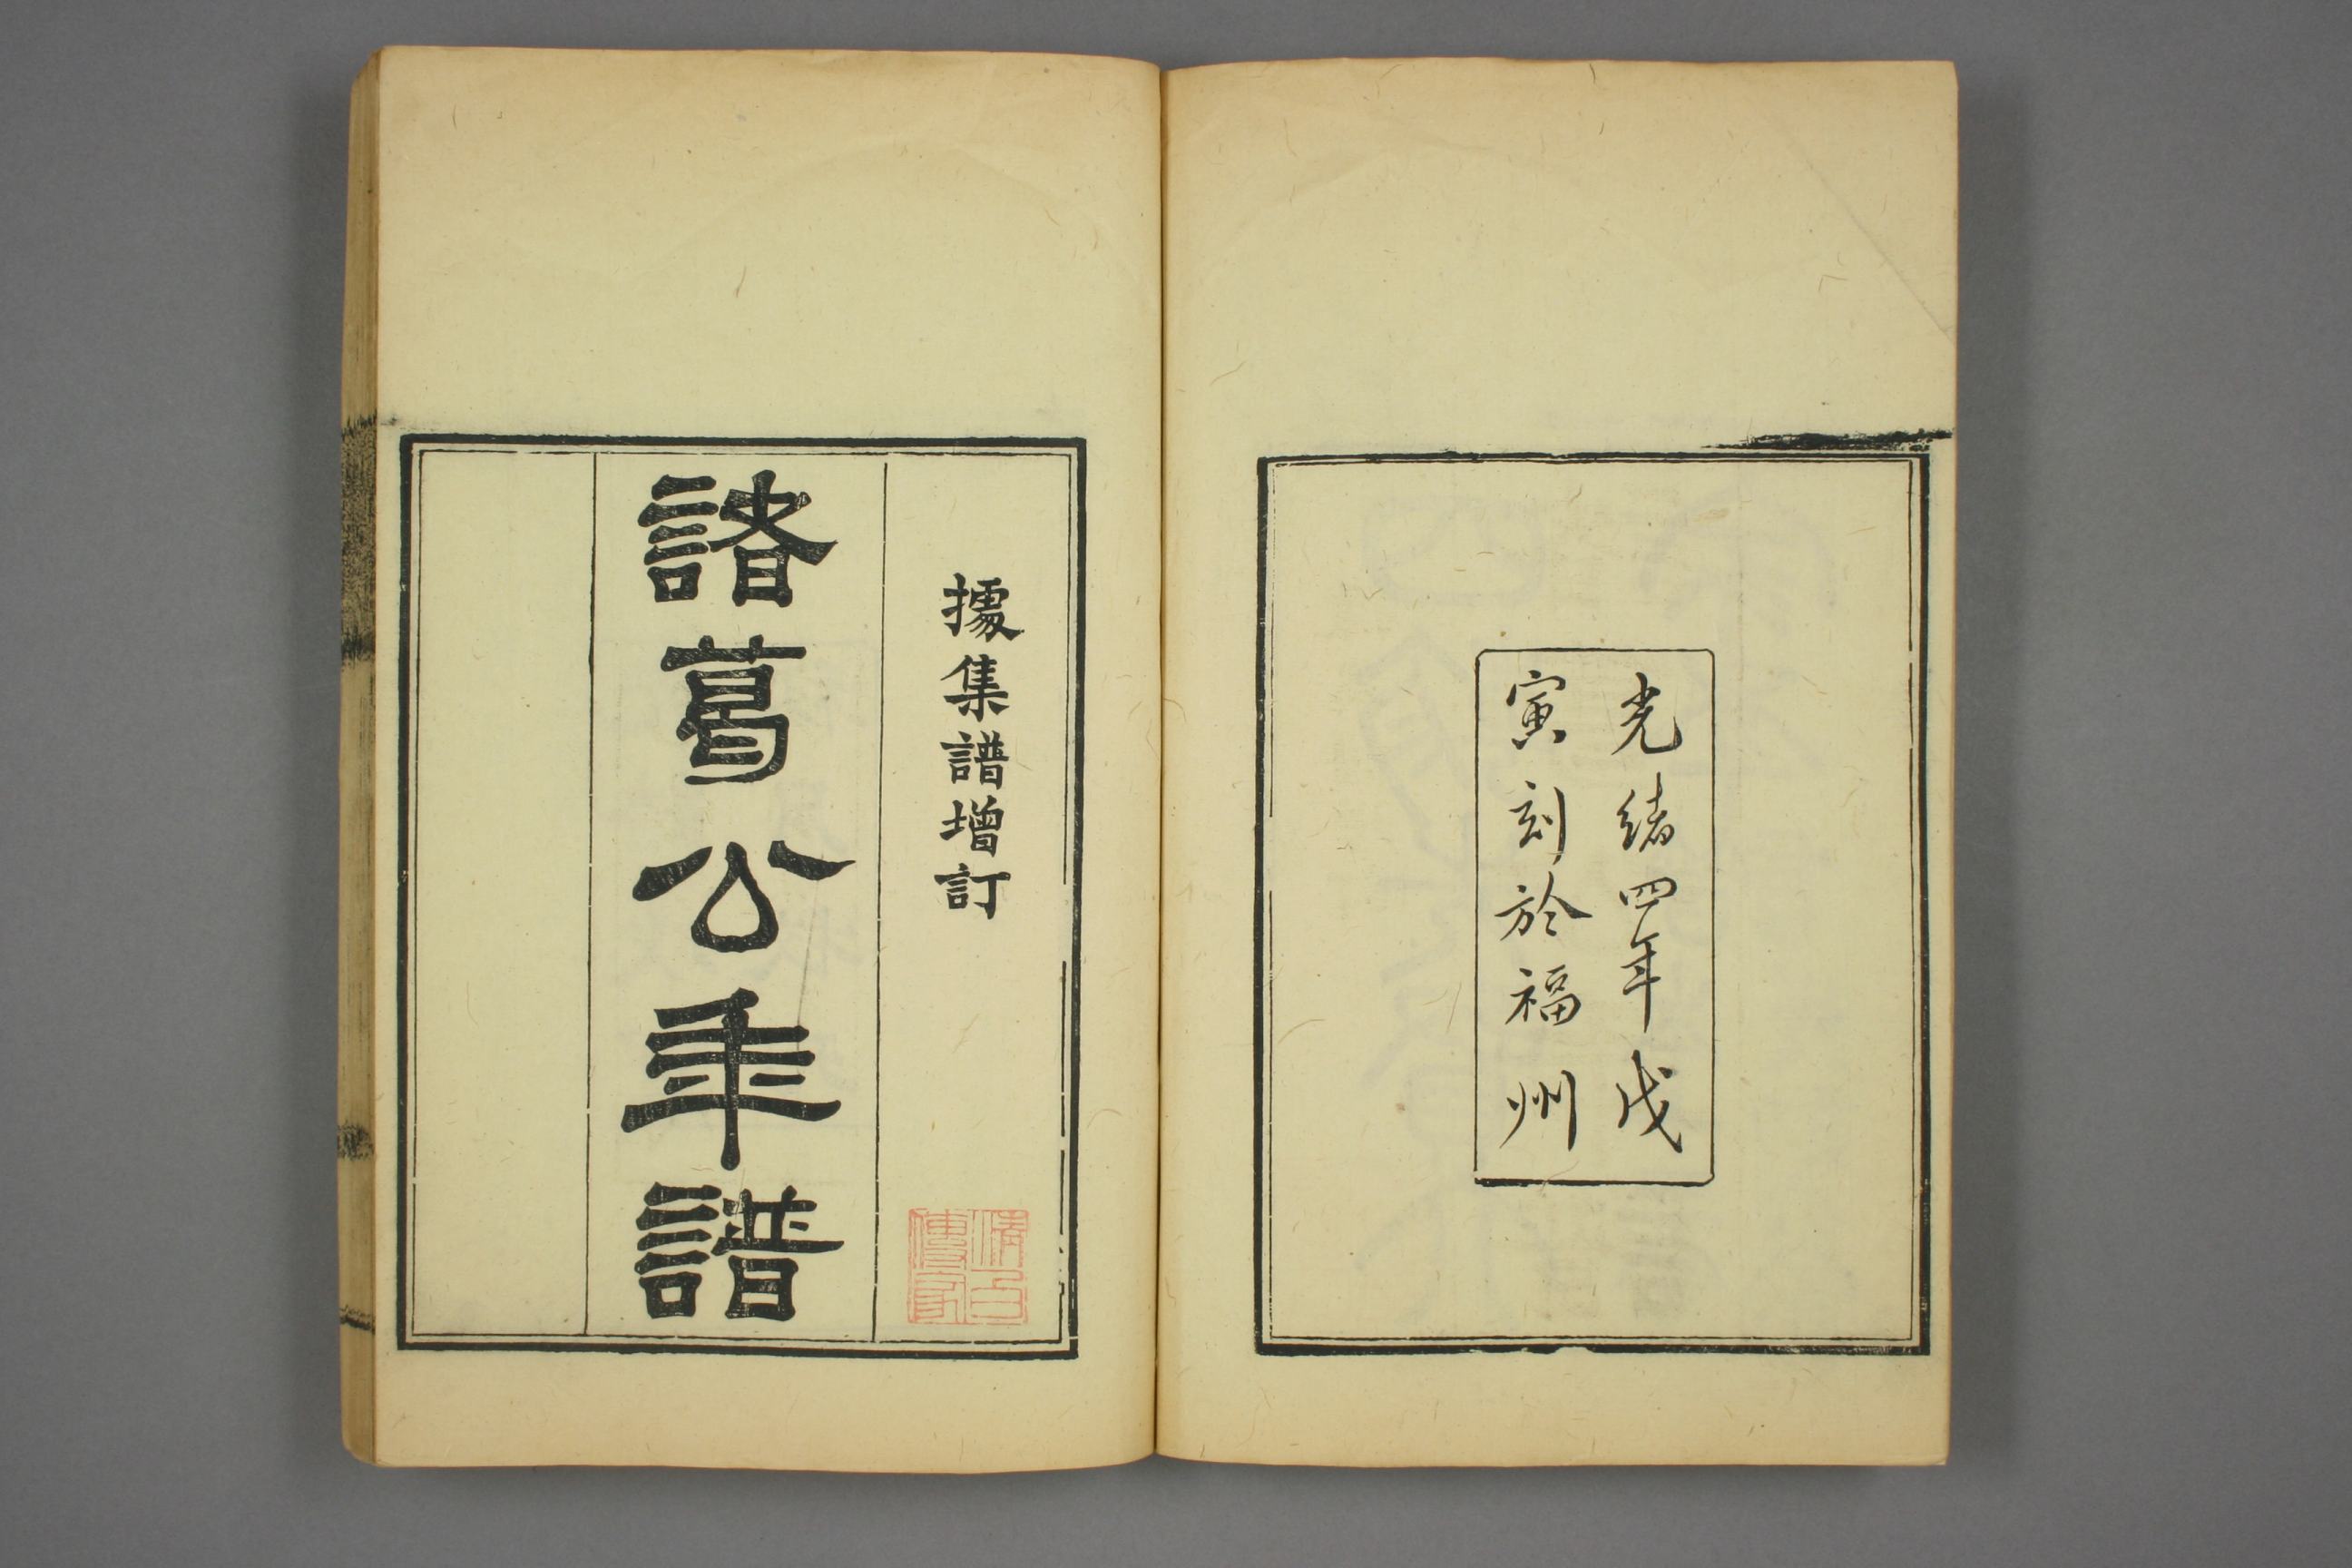 光緒四年戊
寅刻於福州
據集譜增訂
諸葛公年譜
清白傳家